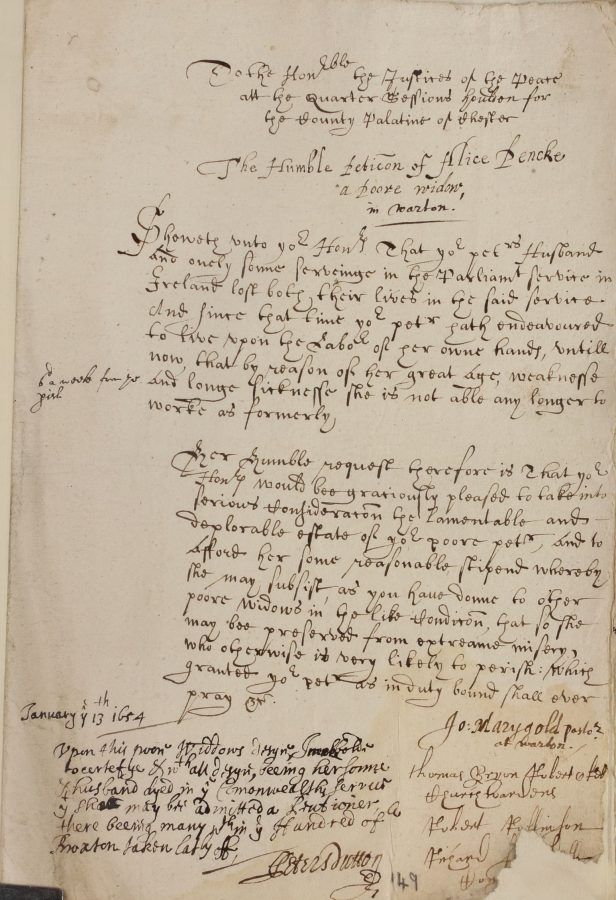 To the Honble the Justices of the Peace
att the Quarter Sessions houlden for
the County Palatine of Chester
The Humble Peticon of Alice Pencke
a poore widow,
in warton.
Sheweth unto yor Honrs That yor petrs Husband
and onely sonne serveinge in the Parliamt service in
Ireland lost both their lives in the said service
And since that time yor petr hath endeavoured
to live upon the Labor of her owne hands, untill
now that by reason of her great Age, weaknesse
and longe sicknesse she is not able any longer to
worke as formerly,
6d a weeke from ye
Her humble request therefore is That yor
Honrs would bee graciously pleased to take into
serious Consideracon the lamentable and
deplorable estate of yor poore petr, and to
afford her some reasonable stipend whereby
she may subsist, as you have donne to other
poore widows in the like Condicon, that so she
may bee preserved from extreame misery,
who otherwise is very likely to perish: which
granted yor petr as in duty bound shall ever
pray &c.
January ye 13th 1654
Upon this poore Widdows desyre I
to certefye & wthall desyre, beeing her sonne
& husband dyed in ye Comonwealths servis
yt shee may bee admitted a pentioner,
there beeing many wthin ye Hundred of
Broxton taken lately off,
Peter Dutton
Jo: Marygold pastor
at warton.
Thomas Bryon Robert
Churchwardens
Robert Rollinson
Richard
149